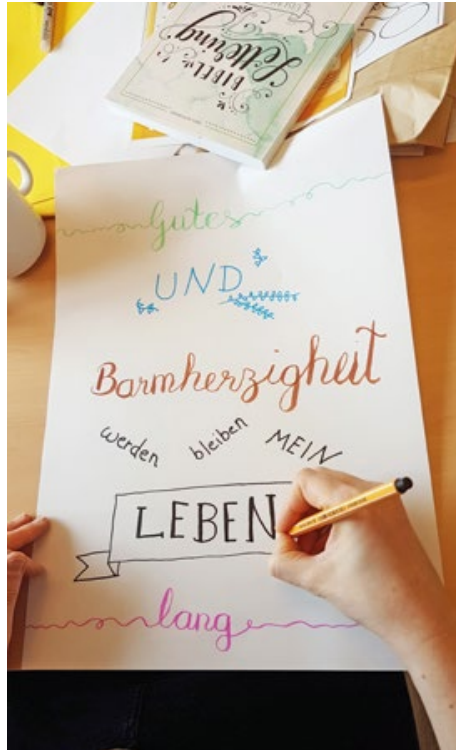 BIBEL
Lettering
Gutes
UND
Barmherzigkeit
werden bleiben MEIN
LEBEN
lang